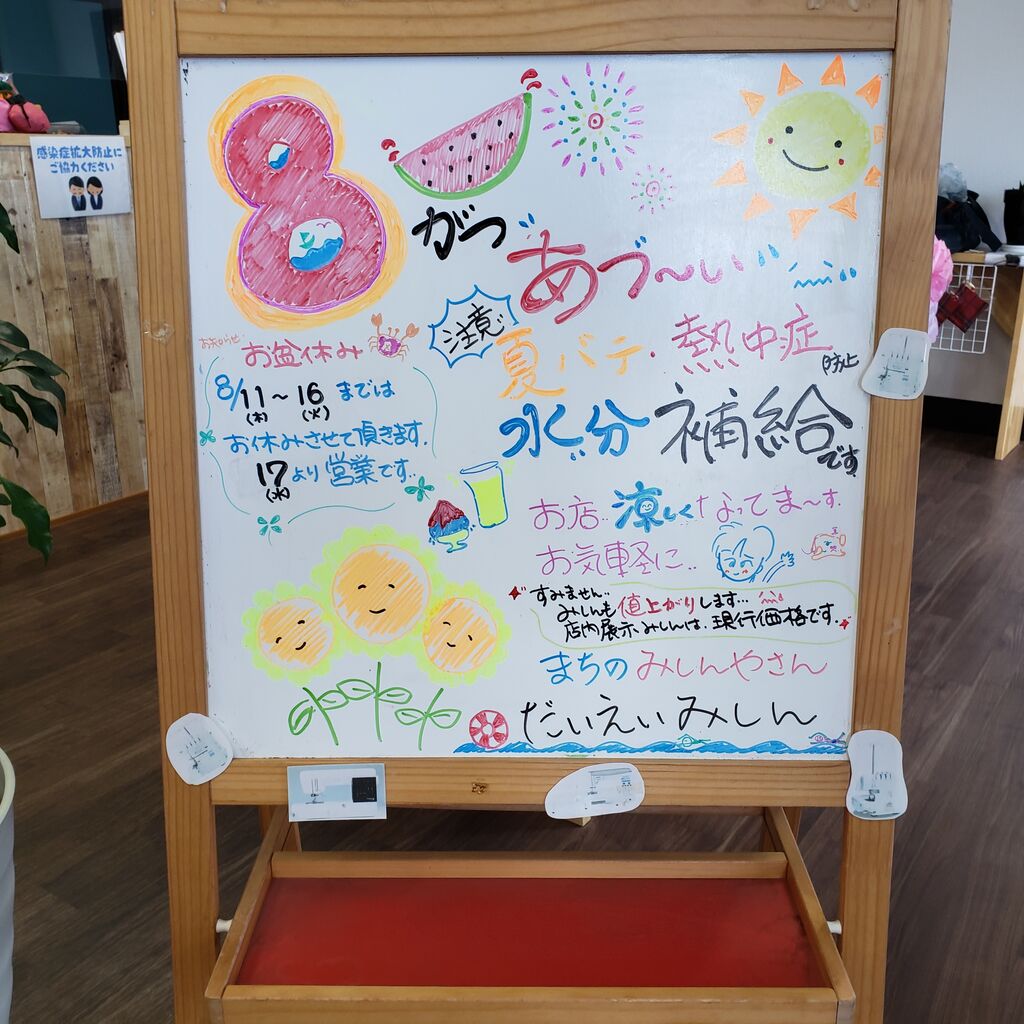 感染症拡大防止に
ご協力ください
8
がつ
あづ～い
注意
夏バテ・熱中症
防止
水分補給です
お知らせ
お盆休み
8/11～16までは
(木) (火)
お休みさせて頂きます.
17より営業です..
(水)
お店..涼しくなってま～す.
お気軽に..
すみません..
みしんも値上がりします...
店内展示みしんは、現行価格です.
まちのみしんやさん
だいえいみしん